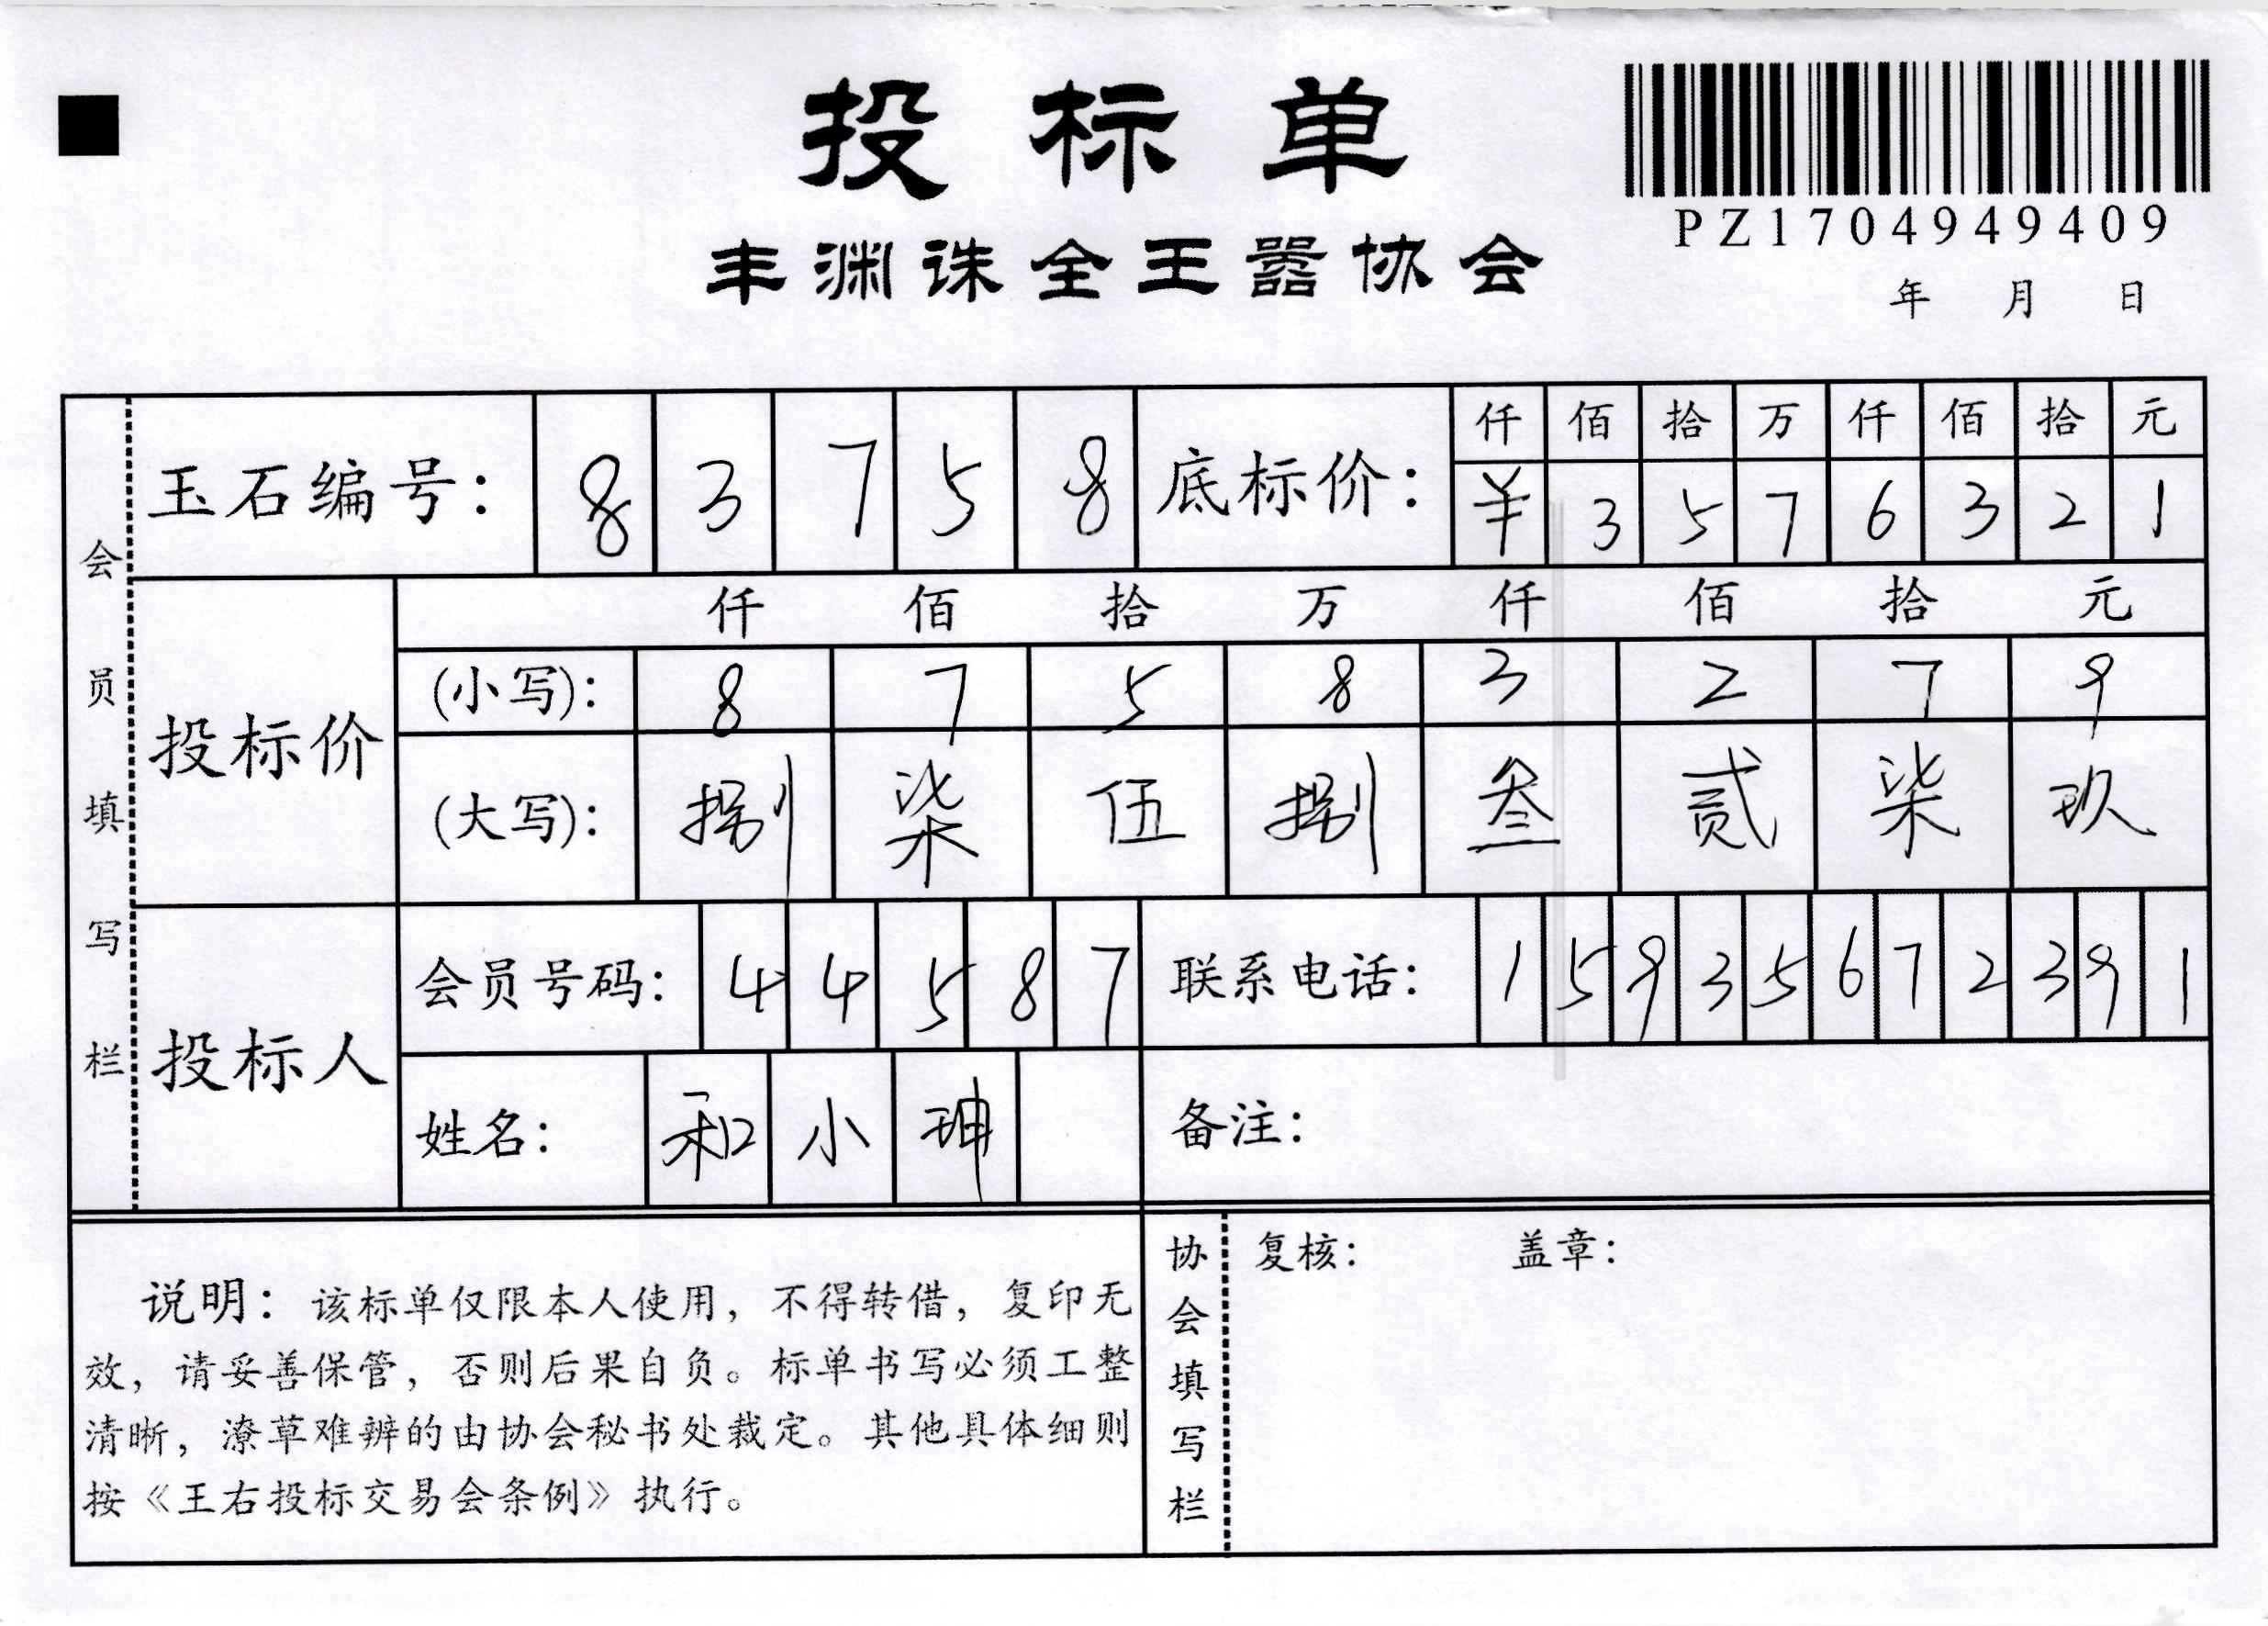 投标单
PZ1704949409
丰渊诛全王嚣协会
年 月 日
会员填写栏
玉石编号： 8 3 7 5 8
底标价： 仟 佰 拾 万 仟 佰 拾 元
¥ 3 5 7 6 3 2 1
投标价
仟 佰 拾 万 仟 佰 拾 元
(小写)： 8 7 5 8 3 2 7 9
(大写)： 捌 柒 伍 捌 叁 贰 柒 玖
投标人
会员号码： 4 4 5 8 7
联系电话： 1 5 9 3 5 6 7 2 3 9 1
姓名： 和 小 珅
备注：
说明：该标单仅限本人使用，不得转借，复印无
效，请妥善保管，否则后果自负。标单书写必须工整
清晰，潦草难辨的由协会秘书处裁定。其他具体细则
按《王右投标交易会条例》执行。
协会填写栏
复核： 盖章：